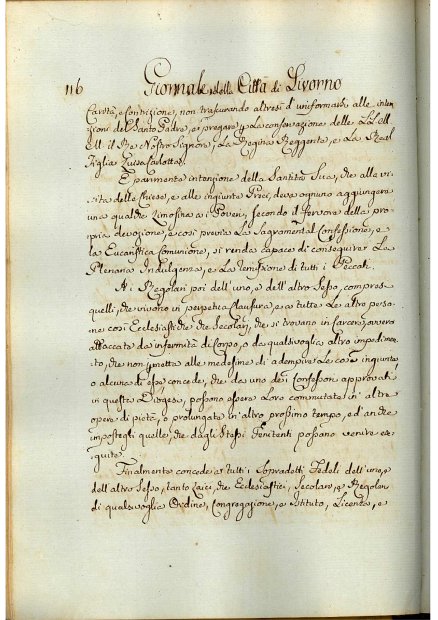 116 Giornale della Città di Livorno
Carità, e Contrizione, non trascurando altresì d'uniformarsi alle inten
zioni del Santo Padre, e pregare p la conservazione delle LL.
il Re Nostro Signore, La Regina Reggente, e La Real
Figlia Luisa Carlotta.
E parimente intenzione della Santità Sua, che alle vi
sita delle Chiese, e alle ingiunte Preci, deva ognuno aggiungere
una qualche Limosina ai Poveri, secondo il fervore della pro
pria devozione, e così previa La Sagramental Confessione, e
la Eucaristica Comunione, si renda capace di conseguire La
Plenaria Indulgenza, e La remissione di tutti i Peccati.
Ai Regolari poi dell'uno, e dell'altro Sesso, compres
quelli, che vivono in perpetua Clausura, e a tutte Le altre perso
ne così Ecclesiastiche che Secolari, che si trovano in Carcere, ovvero
attaccate da infermità di Corpo, o da qualsivoglia altro impedimen
to, che non pmetta alle medesime di adempire Le cose ingiunte,
o alcuna di esse concede, che da uno dei Confessori approvati
in questa Diogesi, possano essere Loro commutate in altre
opere di pietà, o prolungate in altro prossimo tempo, ed anche
imposte gli quelle, che dagli Stessi Penitenti possano venire ese
guite.
Finalmente concede a tutti i Sopradetti Fedeli dell'uno, e
dell'altro Sesso, tanto Laici, che Ecclesiastici, Secolari, e Regolari
di qualsivoglia Ordine, Congregazione, e Istituto, Licenza, e